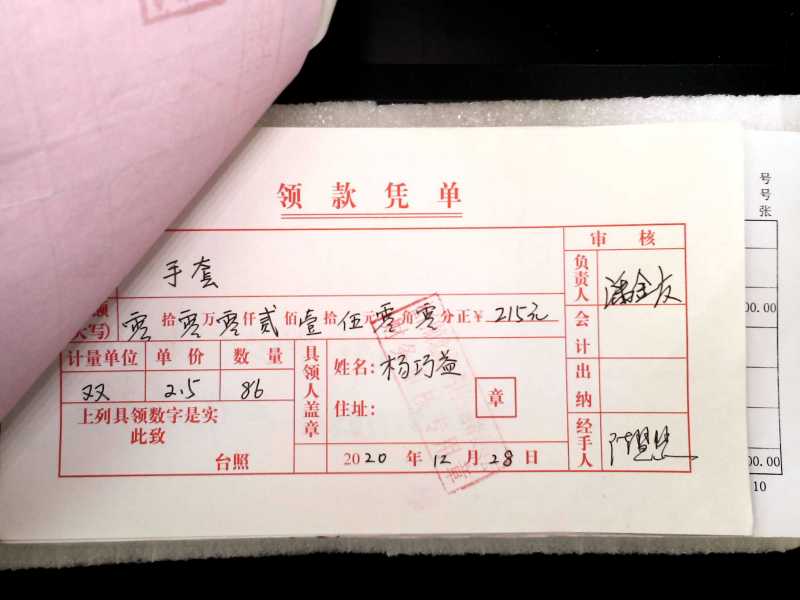 领款凭单
审核
手套
负责人
额
大写) 零拾零万零仟贰佰壹拾伍元零角零分正¥ 215元
会计
计量单位 单价 数量
双 2.5 86
具领人盖章
姓名: 杨巧益
住址:
章
出纳
上列具领数字是实
此致
台照
2020年12月28日
经手人
号
号
张
00.00
00.00
10